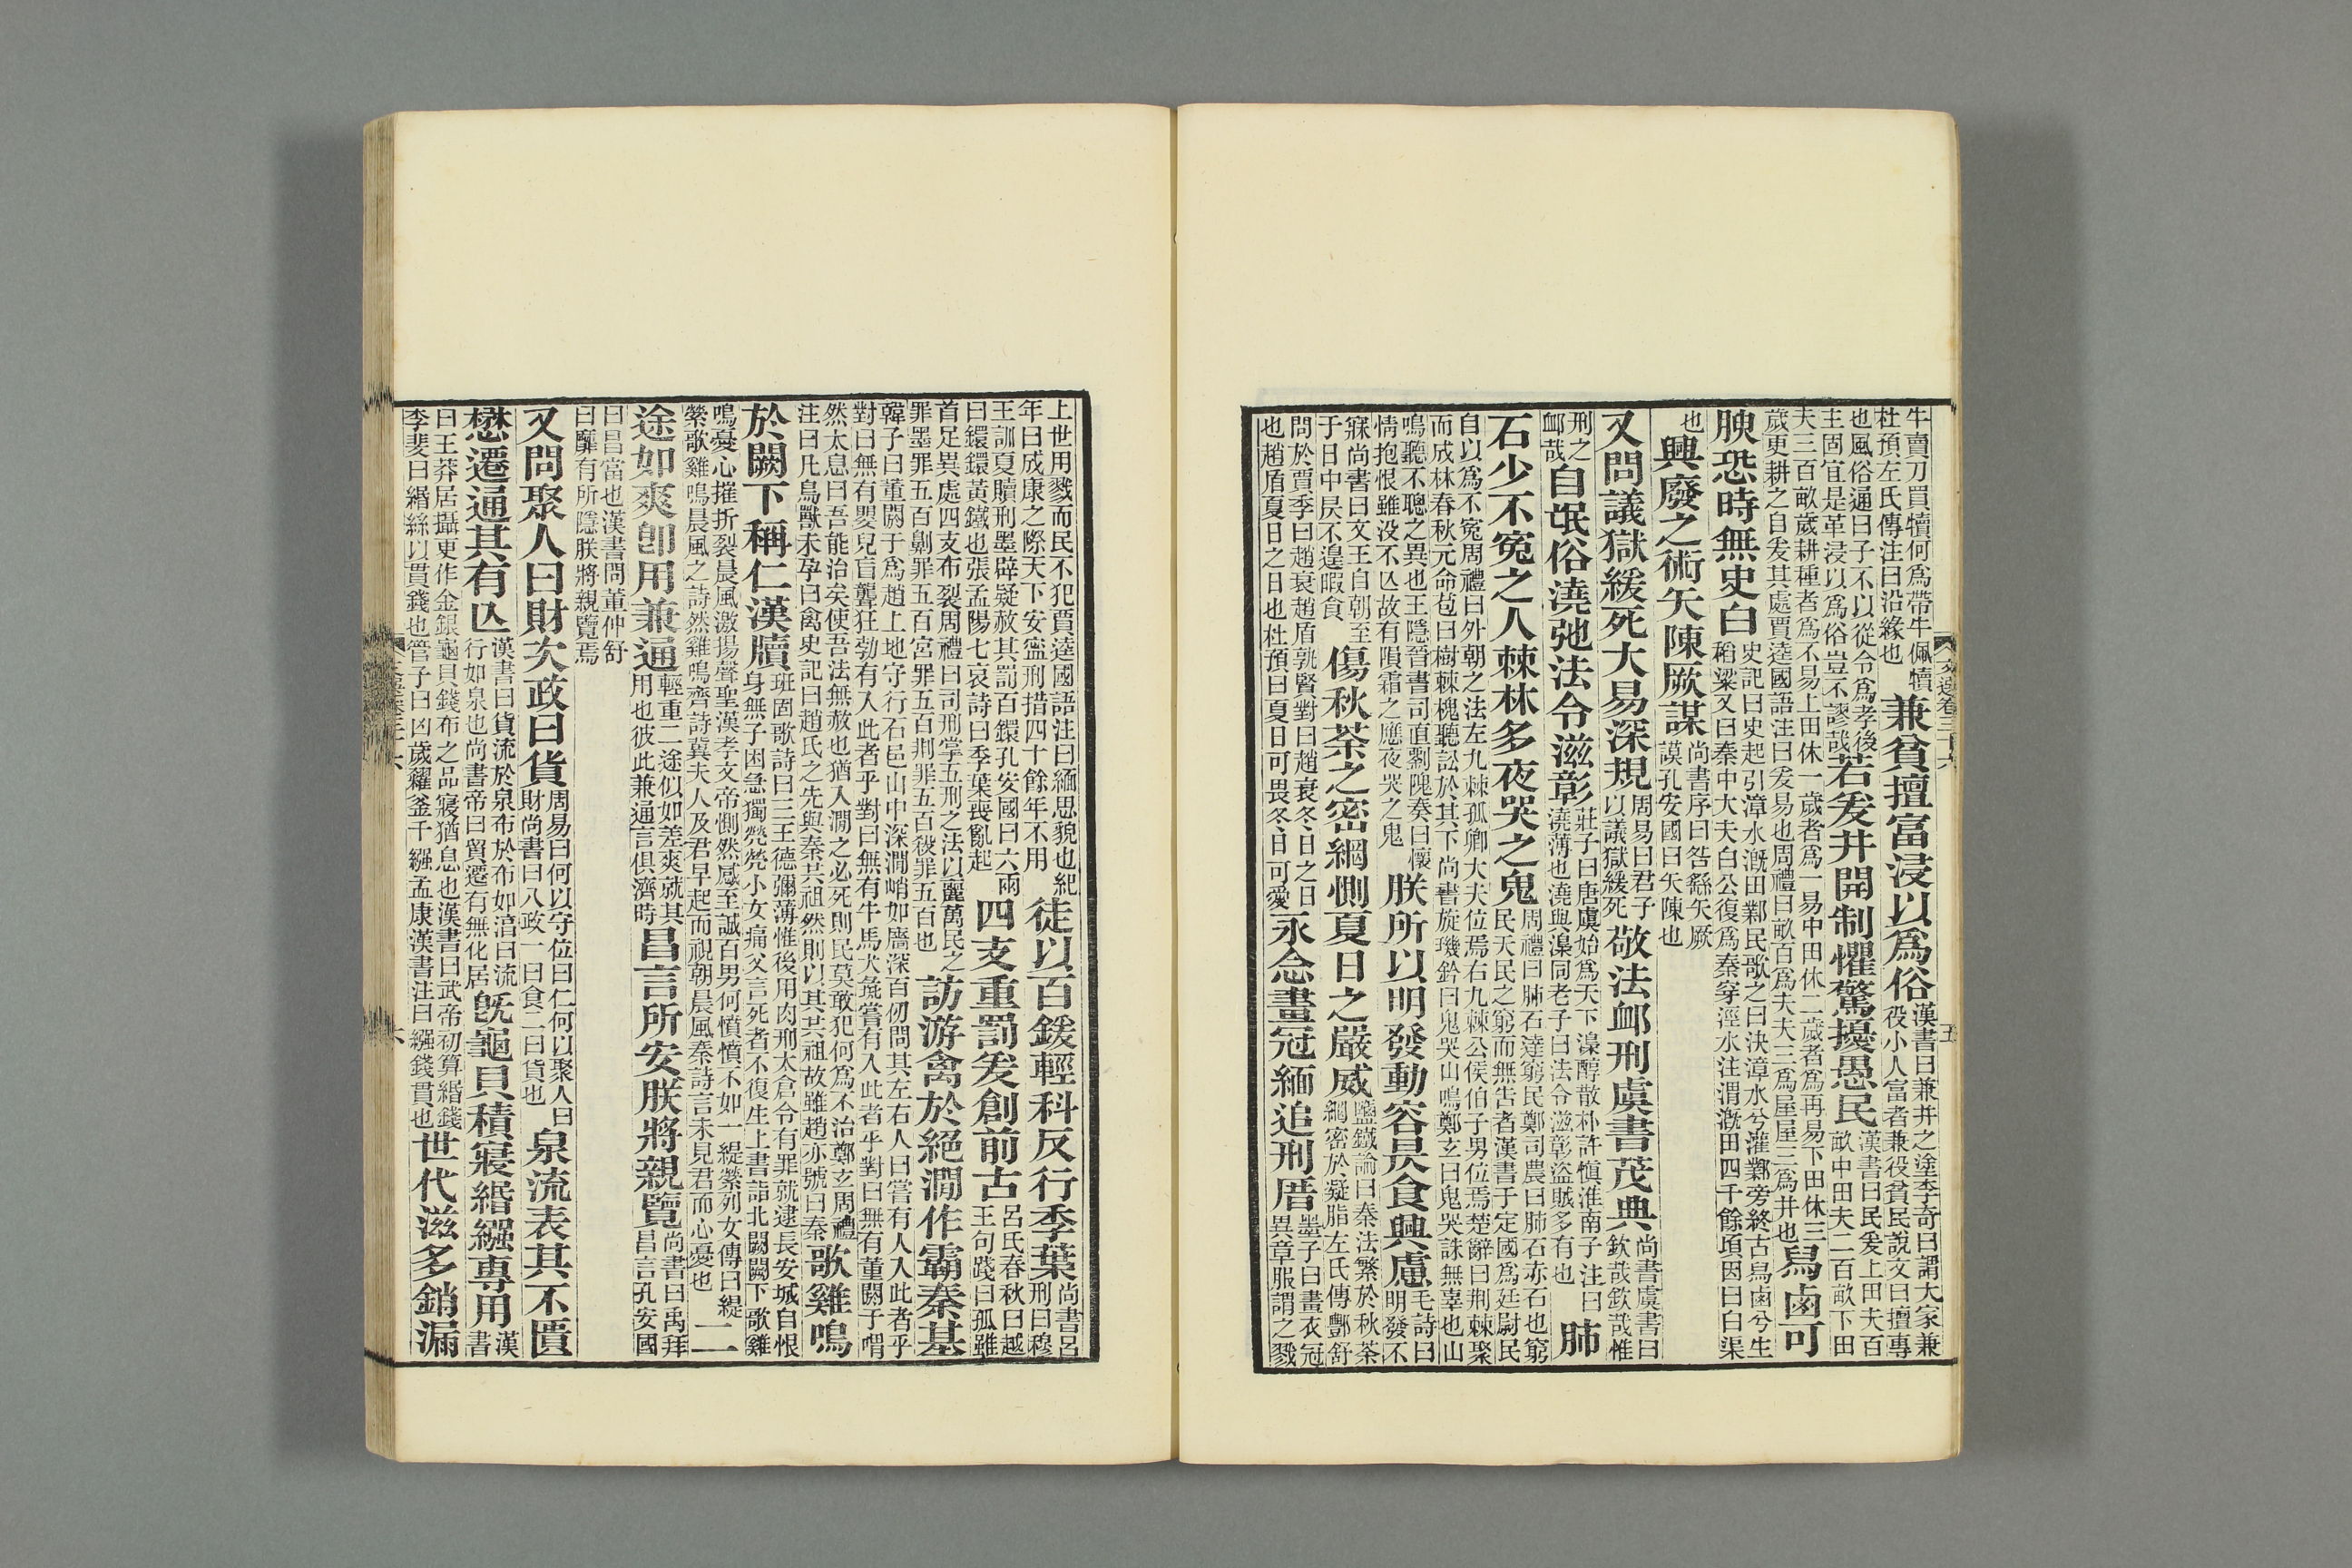 文選卷三十六
五
牛賣刀買犢何爲帶牛佩犢
杜預左氏傳注曰沿緣也
兼貧擅富浸以爲俗
漢書曰兼并之塗李奇曰謂大家兼
役小人富者兼役貧民說文曰擅專
也風俗通曰子不以從令爲孝後
主固宜是革浸以爲俗豈不謬哉
若爰井開制懼驚擾愚民
漢書曰民爰上田夫百
畝中田夫二百畝下田
夫三百畝歲耕種者爲不易上田休一歲者爲一易中田休二歲者爲再易下田休三
歲更耕之自爰其處賈逵國語注曰爰易也周禮曰畝百爲夫夫三爲屋屋三爲井也
舄鹵可
腴恐時無史白
史記曰史起引漳水漑田鄴民歌之曰決漳水兮灌鄴旁終古舄鹵兮生
稻粱又曰秦中大夫白公復爲秦穿涇水注渭漑田四千餘頃因曰白渠
也
興廢之術矢陳厥謀
尚書序曰咎繇矢厥
謨孔安國曰矢陳也
又問議獄緩死大易深規
周易曰君子
以議獄緩死
敬法卹刑虞書茂典
尚書虞書曰
欽哉欽哉惟
刑之
卹哉
自氓俗澆弛法令滋彰
莊子曰唐虞始爲天下澡醇散朴許愼淮南子注曰
澆薄也澆與澡同老子曰法令滋彰盜賊多有也
肺
石少不寃之人棘林多夜哭之鬼
周禮曰肺石達窮民鄭司農曰肺石赤石也窮
民天民之窮而無告者漢書于定國爲廷尉民
自以爲不寃周禮曰外朝之法左九棘孤卿大夫位焉右九棘公侯伯子男位焉楚辭曰荆棘聚
而成林春秋元命苞曰樹棘槐聽訟於其下尚書旋璣鈐曰鬼哭山鳴鄭玄曰鬼哭誅無辜也山
鳴聽不聰之異也王隱晉書司直劉隗奏曰懷
情抱恨雖没不亾故有隕霜之應夜哭之鬼
朕所以明發動容昃食興慮
毛詩曰
明發不
寐尚書曰文王自朝至
于日中昃不遑暇食
傷秋荼之密網惻夏日之嚴威
鹽鐵論曰秦法繁於秋荼
網密於凝脂左氏傳酆舒
問於賈季曰趙衰趙盾孰賢對曰趙衰冬日之日
也趙盾夏日之日也杜預曰夏日可畏冬日可愛
永念畫冠緬追刑厝
墨子曰畫衣冠
異章服謂之戮
上世用戮而民不犯賈逵國語注曰緬思貌也紀
年曰成康之際天下安寍刑措四十餘年不用
徒以百鍰輕科反行季葉
尚書呂
刑曰穆
王訓夏贖刑墨辟疑赦其罰百鍰孔安國曰六兩
曰鍰鍰黃鐵也張孟陽七哀詩曰季葉喪亂起
四支重罰爰創前古
呂氏春秋曰越
王句踐曰孤雖
首足異處四支布裂周禮曰司刑掌五刑之法以麗萬民之
罪墨罪五百劓罪五百宮罪五百刖罪五百殺罪五百也
訪游禽於絕澗作霸秦基
韓子曰董閼于爲趙上地守行石邑山中深澗峭如牆深百仞問其左右人曰嘗有人入此者乎
對曰無有嬰兒盲聾狂勃有入此者乎對曰無有牛馬犬彘嘗有入此者乎對曰無有董閼于喟
然太息曰吾能治矣使吾法無赦也猶入澗之必死則民莫敢犯何爲不治鄭玄周禮
注曰凡鳥獸未孕曰禽史記曰趙氏之先與秦共祖然則以其共祖故雖趙亦號曰秦
歌雞鳴
於闕下稱仁漢牘
班固歌詩曰三王德彌薄惟後用肉刑太倉令有罪就逮長安城自恨
身無子困急獨煢煢小女痛父言死者不復生上書詣北闕闕下歌雞
鳴憂心摧折裂晨風激揚聲聖漢孝文帝惻然感至誠百男何憒憒不如一緹縈列女傳曰緹
縈歌雞鳴晨風之詩然雞鳴齊詩冀夫人及君早起而視朝晨風秦詩言未見君而心憂也
二
途如爽卽用兼通
輕重二途似如差爽就其
用也彼此兼通言俱濟時
昌言所安朕將親覽
尚書曰禹拜
昌言孔安國
曰昌當也漢書問董仲舒
曰靡有所隱朕將親覽焉
又問聚人曰財次政曰貨
周易曰何以守位曰仁何以聚人曰
財尚書曰八政一曰食二曰貨也
泉流表其不匱
懋遷通其有亾
漢書曰貨流於泉布於布如淳曰流
行如泉也尚書帝曰貿遷有無化居
旣龜貝積寢緡繈專用
漢
書
曰王莽居攝更作金銀龜貝錢布之品寢猶息也漢書曰武帝初算緡錢
李斐曰緡絲以貫錢也管子曰凶歲糴釜千繈孟康漢書注曰繈錢貫也
世代滋多銷漏
六